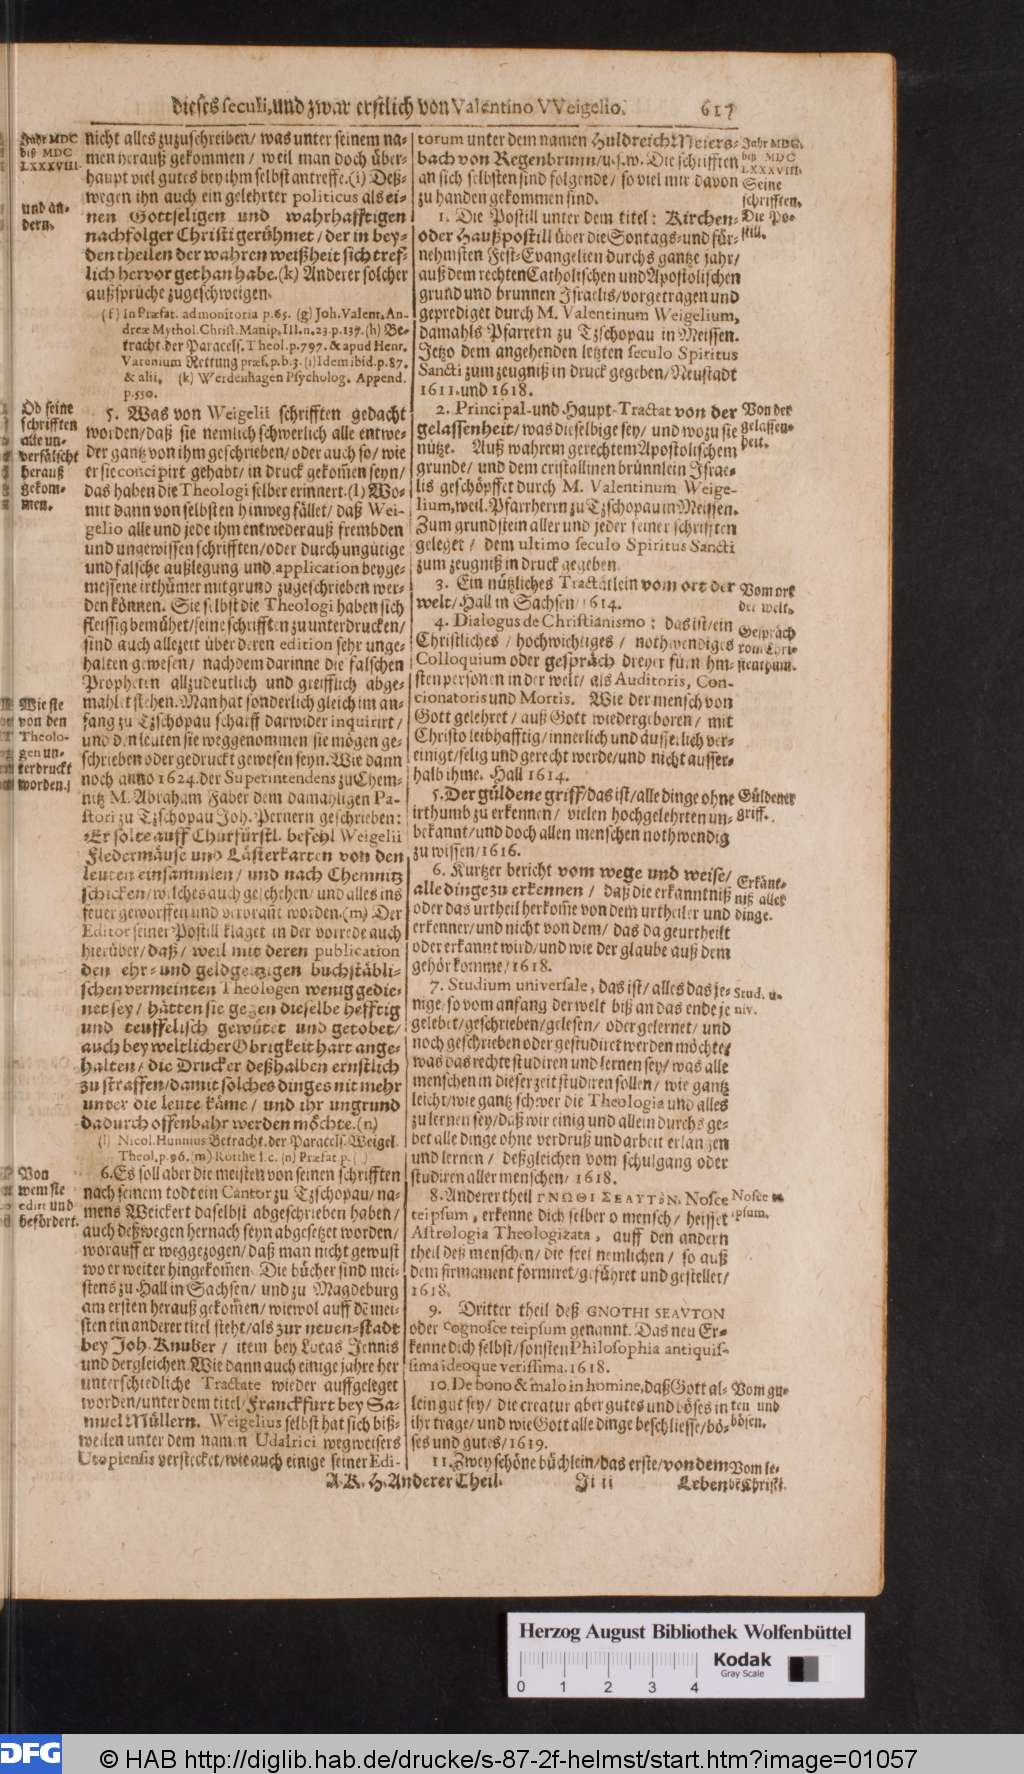 dieses seculi, und zwar erstlich von Valentino VVeigelio. 617
Jahr MDC
biß MDC
LXXXVIII.
und an-
dern.
nicht alles zuzuschreiben/ was unter seinem na-
men herauß gekommen / weil man doch über-
haupt viel gutes bey ihm selbst antreffe.(i) Deß-
wegen ihn auch ein gelehrter politicus als ei-
nen Gottseligen und wahrhafftigen
nachfolger Christi gerühmet / der in bey-
den theilen der wahren weißheit sich tref-
lich hervor gethan habe.(k) Anderer solcher
außsprüche zugeschweigen.
(f) In Præfat. admonitoria p.65. (g) Joh. Valent. An-
dreæ Mythol. Christ. Manip. III. n. 23. p.137. (h) Be-
tracht. der Paracels. Theol. p.797. & apud Henr.
Varenium Rettung præf. p.b.3. (i) Idem ibid. p.87.
& alii. (k) Werdenhagen Psycholog. Append.
p.550.
Ob seine
schrifften
alle un-
verfälscht
herauß
gekom-
men.
5. Was von Weigelii schrifften gedacht
worden/ daß sie nemlich schwerlich alle entwe-
der gantz von ihm geschrieben/ oder auch so/ wie
er sie concipirt gehabt/ in druck gekom̃en seyn/
das haben die Theologi selber erinnert.(l) Wo-
mit dann von selbsten hinweg fället/ daß Wei-
gelio alle und jede ihm entweder auß frembden
und ungewissen schrifften/ oder durch ungütige
und falsche außlegung und application beyge-
messene irthümer mit grund zugeschrieben wer-
den können. Sie selbst die Theologi haben sich
fleissig bemühet/ seine schrifften zu unterdrucken/
sind auch allezeit über deren edition sehr unge-
halten gewesen/ nachdem darinne die falschen
Propheten allzudeutlich und greifflich abge-
mahlet stehen. Man hat sonderlich gleich im an-
fang zu Tzschopau scharff darwider inquirirt /
und den leuten sie weggenommen sie mögen ge-
schrieben oder gedruckt gewesen seyn. Wie dann
noch anno 1624. der Superintendens zu Chem-
nitz M. Abraham Faber dem damahligen Pa-
stori zu Tzschopau Joh. Pernern geschrieben:
Er solte auff Churfürstl. befehl Weigelii
Fledermäuse und Lästerkarten von den
leuten einsammlen / und nach Chemnitz
schicken/ welches auch geschehen/ und alles ins
feuer geworffen und verbrañt worden.(m) Der
Editor seiner Postill klaget in der vorrede auch
hierüber/ daß/ weil mit deren publication
den ehr- und geldgeitzigen buchstäbli-
schen vermeinten Theologen wenig gedie-
net sey / hätten sie gegen dieselbe hefftig
und teuffelisch gewütet und getobet/
auch bey weltlicher Obrigkeit hart ange-
halten / die Drucker deßhalben ernstlich
zu straffen/ damit solches dinges nit mehr
unter die leute käme / und ihr ungrund
dadurch offenbahr werden möchte.(n)
Wie sie
von den
Theolo-
gen un-
terdruckt
worden.
(l) Nicol. Hunnius Betracht. der Paracels. Weigel.
Theol. p.96. (m) Rotthe l.c. (n) Præfat p. (..)
Von
wem sie
edirt und
befördert.
6. Es soll aber die meisten von seinen schrifften
nach seinem todt ein Cantor zu Tzschopau/ na-
mens Weickert daselbst abgeschrieben haben /
auch deßwegen hernach seyn abgesetzet worden/
worauff er weggezogen/ daß man nicht gewust
wo er weiter hingekom̃en. Die bücher sind mei-
stens zu Hall in Sachsen/ und zu Magdeburg
am ersten herauß gekom̃en/ wiewol auff dẽ mei-
sten ein anderer titel steht/ als zur neuen-stadt
bey Joh. Knuber / item bey Lucas Jennis
und dergleichen. Wie dann auch einige jahre her
unterschiedliche Tractate wieder auffgeleget
worden/ unter dem titel/ Franckfurt bey Sa-
muel Müllern. Weigelius selbst hat sich biß-
weilen unter dem namen Udalrici wegweisers
Utopiensis verstecket/ wie auch einige seiner Edi-
torum unter dem namen Huldreich Meiers-
bach von Regenbrunn/ u.s.w. Die schrifften
an sich selbsten sind folgende / so viel mir davon
zu handen gekommen sind.
Jahr MDC.
biß MDC
LXXXVIII.
Seine
schrifften.
Die Po-
still.
1. Die Postill unter dem titel: Kirchen-
oder Haußpostill über die Sontags- und für-
nehmsten Fest-Evangelien durchs gantze jahr/
auß dem rechten Catholischen und Apostolischen
grund und brunnen Israelis/ vorgetragen und
geprediget durch M. Valentinum Weigelium,
damahls Pfarrern zu Tzschopau in Meissen.
Jetzo dem angehenden letzten seculo Spiritus
Sancti zum zeugniß in druck gegeben/ Neustadt
1611. und 1618.
2. Principal- und Haupt-Tractat von der
gelassenheit/ was dieselbige sey/ und wozu sie
nütze. Auß wahrem gerechtem Apostolischem
grunde/ und dem cristallinen brünnlein Israe-
lis geschöpffet durch M. Valentinum Weige-
lium, weil. Pfarrherrn zu Tzschopau in Meissen.
Zum grundstein aller und jeder seiner schrifften
geleget / dem ultimo seculo Spiritus Sancti
zum zeugniß in druck gegeben.
Von der
gelassen-
heit.
3. Ein nützliches Tractätlein vom ort der
welt/ Hall in Sachsen/ 1614.
Vom ort
der welt.
4. Dialogus de Christianismo: das ist/ ein
Christliches / hochwichtiges / nothwendiges
Colloquium oder gespräch dreyer fürnehm-
sten personen in der welt/ als Auditoris, Con-
cionatoris und Mortis. Wie der mensch von
Gott gelehret / auß Gott wiedergeboren / mit
Christo leibhafftig/ innerlich und äusserlich ver-
einigt/ selig und gerecht werde/ und nicht ausser-
halb ihme. Hall 1614.
Gespräch
vom Chri-
stenthum.
5. Der güldene griff/ das ist/ alle dinge ohne
irthumb zu erkennen / vielen hochgelehrten un-
bekannt/ und doch allen menschen nothwendig
zu wissen/ 1616.
Güldener
griff.
6. Kurtzer bericht vom wege und weise/
alle dinge zu erkennen / daß die erkanntniß
oder das urtheil herkom̃e von dem urtheiler und
erkenner/ und nicht von dem/ das da geurtheilt
oder erkannt wird/ und wie der glaube auß dem
gehör komme/ 1618.
Erkänt-
niß aller
dinge.
7. Studium universale, das ist/ alles das je-
nige/ so vom anfang der welt biß an das ende je
gelebet/ geschrieben/ gelesen/ oder gelernet/ und
noch geschrieben oder gestudiret werden möchte/
was das rechte studiren und lernen sey/ was alle
menschen in dieser zeit studiren sollen/ wie gantz
leicht/ wie gantz schwer die Theologia und alles
zu lernen sey/ daß wir einig und allein durchs ge-
bet alle dinge ohne verdruß und arbeit erlangen
und lernen / deßgleichen vom schulgang oder
studiren aller menschen/ 1618.
Stud. u-
niv.
8. Anderer theil ΓΝΩΘΙ ΣΕΑΥΤΟΝ. Nosce
teipsum, erkenne dich selber o mensch/ heisset
Astrologia Theologizata, auff den andern
theil deß menschen/ die seel nemlichen / so auß
dem firmament formiret/ geführet und gestellet/
1618.
Nosce te
ipsum.
9. Dritter theil deß GNOTHI SEAVTON
oder Cognosce teipsum genannt. Das neu Er-
kenne dich selbst/ sonsten Philosophia antiquis-
sima ideoque verissima. 1618.
10. De bono & malo in homine, daß Gott al-
lein gut sey/ die creatur aber gutes und böses in
ihr trage/ und wie Gott alle dinge beschliesse/ bö-
ses und gutes/ 1619.
Vom gu-
ten und
bösen.
11. Zwey schöne büchlein/ das erste/ von dem
Vom le-
ben Christi.
A. K. H. Anderer Theil. Ji ii Leben
Herzog August Bibliothek Wolfenbüttel
Kodak
Gray Scale
0 1 2 3 4
DFG © HAB http://diglib.hab.de/drucke/s-87-2f-helmst/start.htm?image=01057